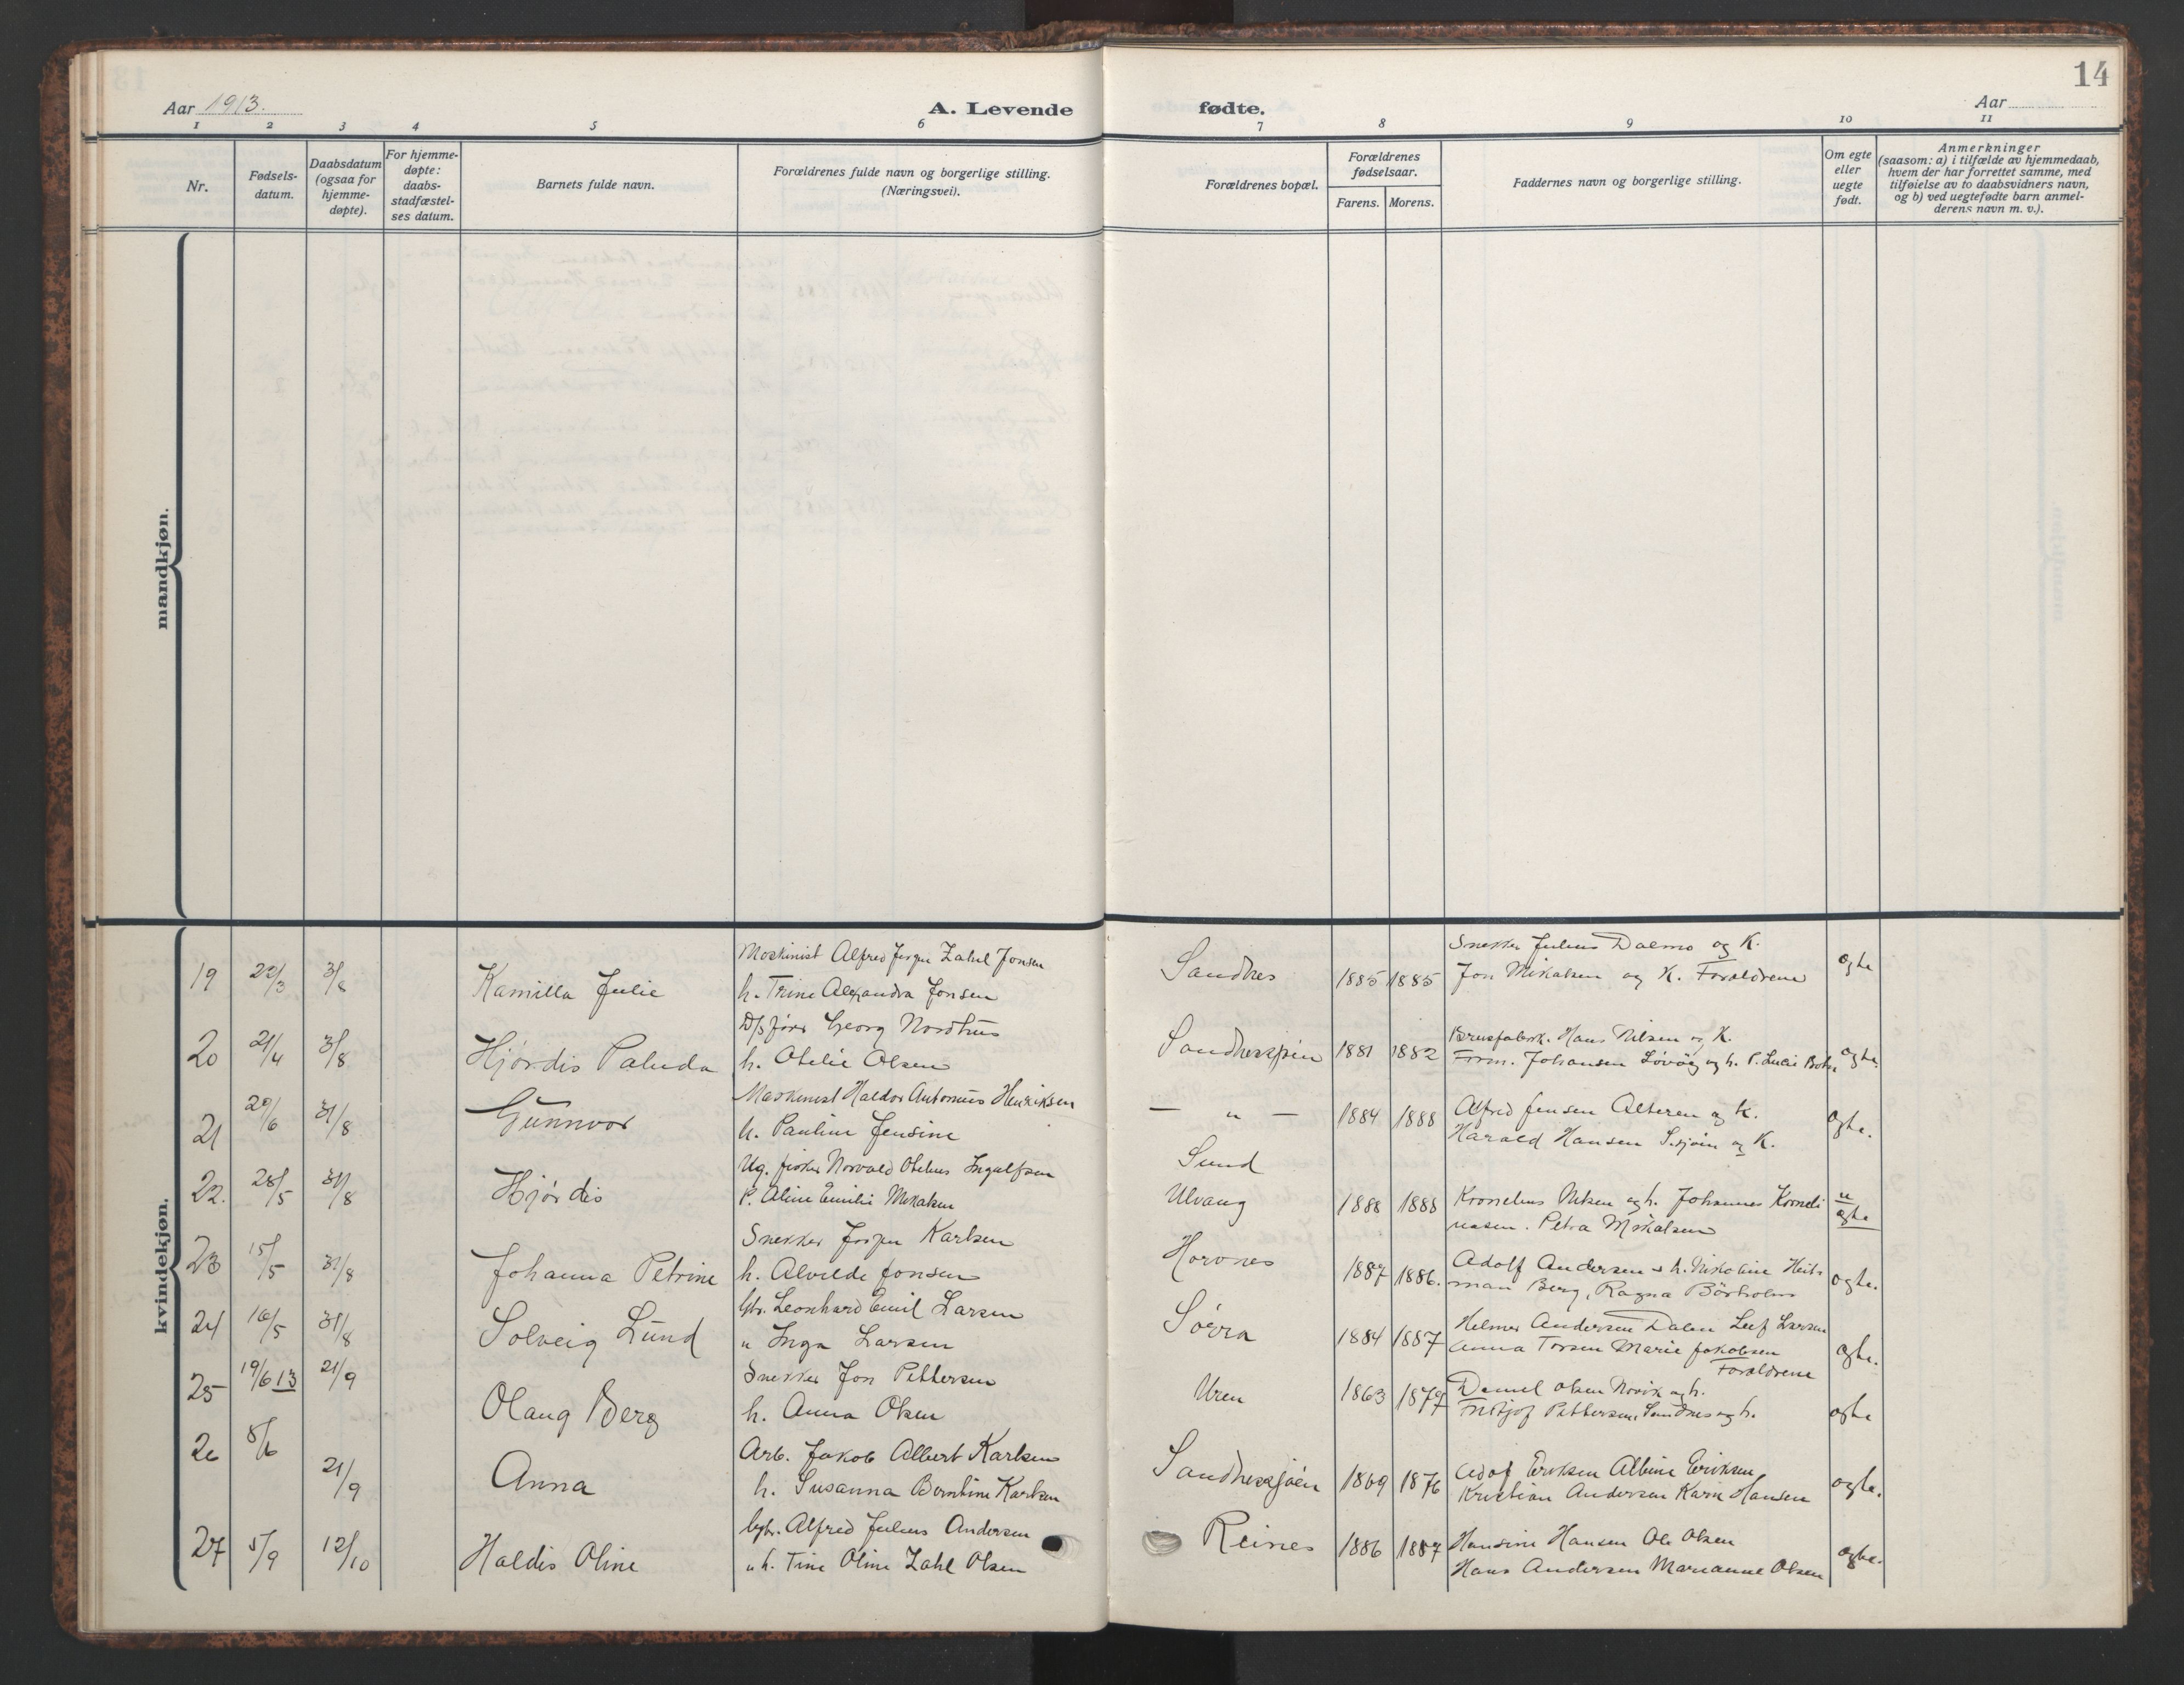 14
Aar 1913.
A. Levende
fødte.
Aar
1 2 3 4 5 6 7 8 9 10 11
Nr.
Fødsels-
datum.
Daabsdatum
(ogsaa for
hjemme-
døpte).
For hjemme-
døpte:
daabs-
stadfæstel-
ses datum.
Barnets fulde navn.
Forældrenes fulde navn og borgerlige stilling.
(Næringsvei).
Forældrenes bopæl.
Forældrenes
fødselsaar.
Farens. Morens.
Faddernes navn og borgerlige stilling.
Om egte
eller
uegte
født.
Anmerkninger
(saasom: a) i tilfælde av hjemmedaab,
hvem der har forrettet samme, med
tilføielse av to daabsvidners navn,
og b) ved uegtefødte barn anmel-
derens navn m. v.).
mandkjøn.
kvindekjøn.
Maskinist Alfred Jesper Zahl Jonsen
Snekker Julius Dalmo og K.
19 22/3 31/8 Kamilla Julie h. Trine Alexandra Jonsen Sandnes 1885 1885 Jon Mikalsen og K. Forældrene egte
D/s fører Georg Nordhus
Brusfabrik. Hans Nilsen og K.
20 21/4 31/8 Hjørdis Paluda h. Otelie Olsen Sandnessjøen 1881 1882 Form. Johansen Løvöy og h. P. Lucie egte.
Maskinist Haldor Antonius Henriksen
21 29/6 31/8 Gunnvor h. Pauline Jensine — " — 1884 1888 Alfred Jensen Alteren og K.
Harald Hansen S.sjöen og K. egte.
Ug. fisker Norvald Otelius Ingulfsen Sund
22. 28/5 31/8 Hjørdis P. Aline Emilie Mikalsen Ulvang 1888 1888 Kornelius Nilsen og h. Johannes Korneli
usen. Petra Mikalsen u egte
Snekker Jesper Karlsen
23 15/5 31/8 Johanna Petrine h. Alvilde Jonsen Horvnes 1887 1886. Adolf Andersen & h. Nikoline Heit-
man Berg, Ragna Bårholm egte.
Gbr. Leonhard Emil Larsen
24 16/5 31/8 Solveig Lund " Inga Larsen Søvra 1884 1887 Helmer Andersen Dalen Leif Larsen
Anna Torsen Marie Jakobsen
Forældrene egte.
Snekker Jon Pettersen
25 19/6 13 21/9 Olaug Berg h. Anna Olsen Uren 1863 1879 Daniel Olsen Norvik og h.
Fritjof Pettersen, Sandnes og h. egte
Arb. Jakob Albert Karlsen
26 8/6 21/9 Anna h. Susanna Berntine Karlsen Sandnessjøen 1869 1876 Adof Eriksen Albine Eriksen,
Kristian Andersen Karen Hansen egte.
Gbr. Alfred Julius Andersen
27 5/9 12/10 Haldis Oline " h. Tine Oline Zahl Olsen Reines 1886 1887 Hansine Hansen Ole Olsen
Hans Andersen Marianne Olsen egte.